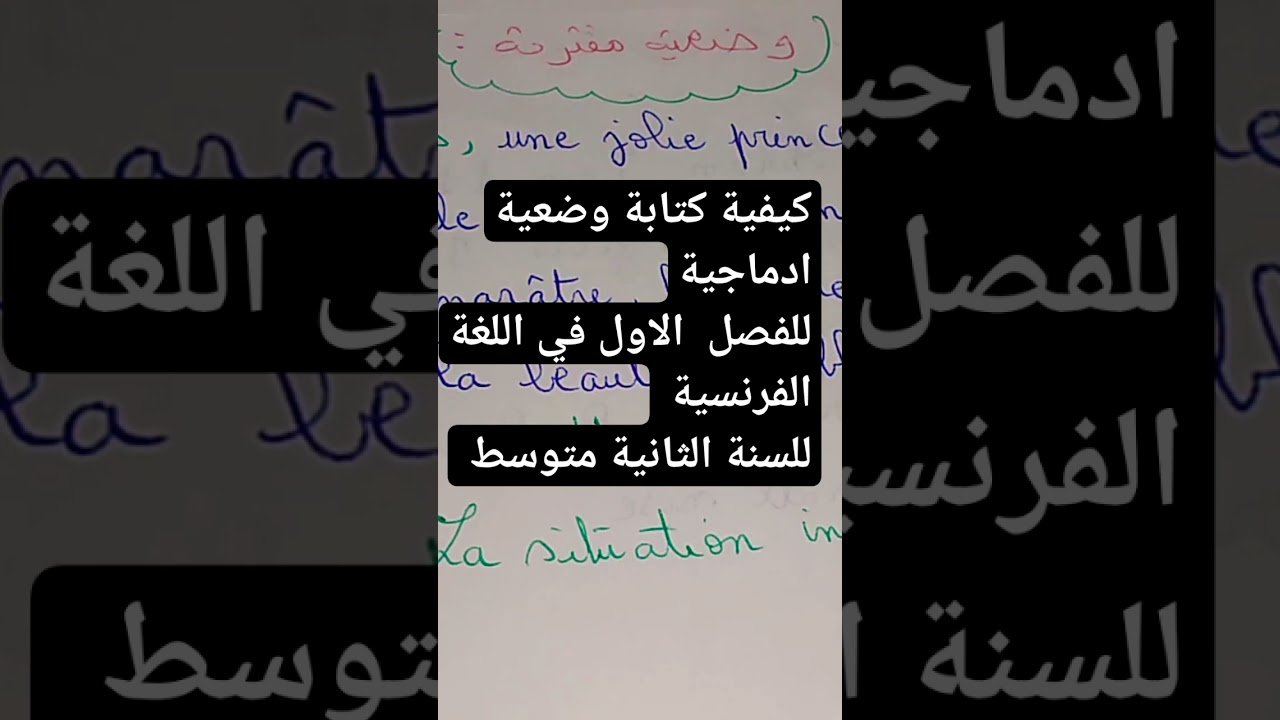 ( وضعية مقترحة :
, une jolie prince
كيفية كتابة وضعية
ادماجية
للفصل الاول في اللغة
الفرنسية
للسنة الثانية متوسط
marâtre
la beau
La situation in